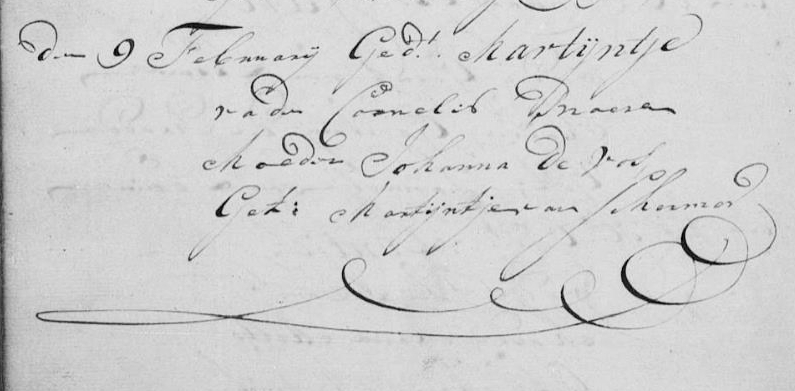 den 9 February Gedt. Martijntje
vader Cornelis
Moeder Johanna de Vos
Get: Martijntje van